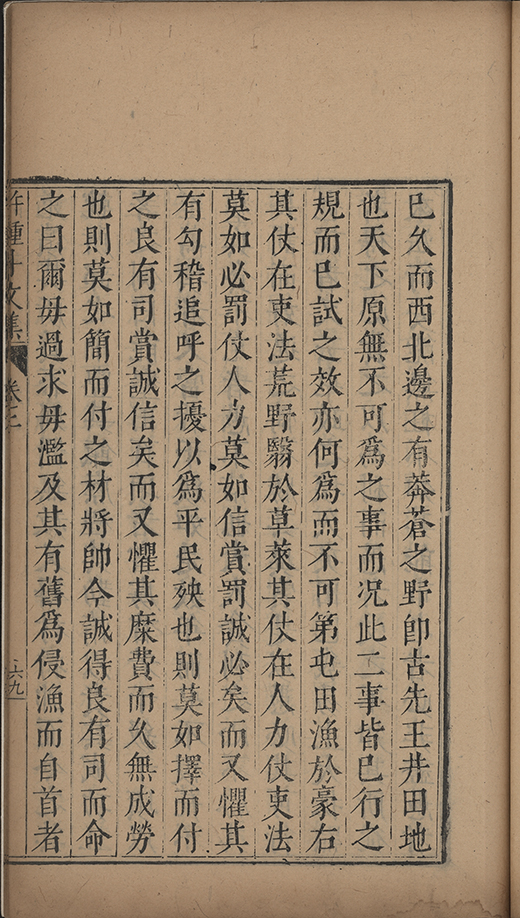 已久而西北邊之有莽蒼之野卽古先王井田地
也天下原無不可爲之事而况此二事皆已行之
規而已試之效亦何爲而不可第屯田漁於豪右
其仗在吏法荒野翳於草萊其仗在人力仗吏法
莫如必罰仗人力莫如信賞罰誠必矣而又懼其
有勾稽追呼之擾以爲平民殃也則莫如擇而付
之良有司賞誠信矣而又懼其糜費而久無成勞
也則莫如簡而付之材將帥今誠得良有司而命
之曰爾毋過求毋濫及其有舊爲侵漁而自首者
許鍾斗文集 卷二 六九